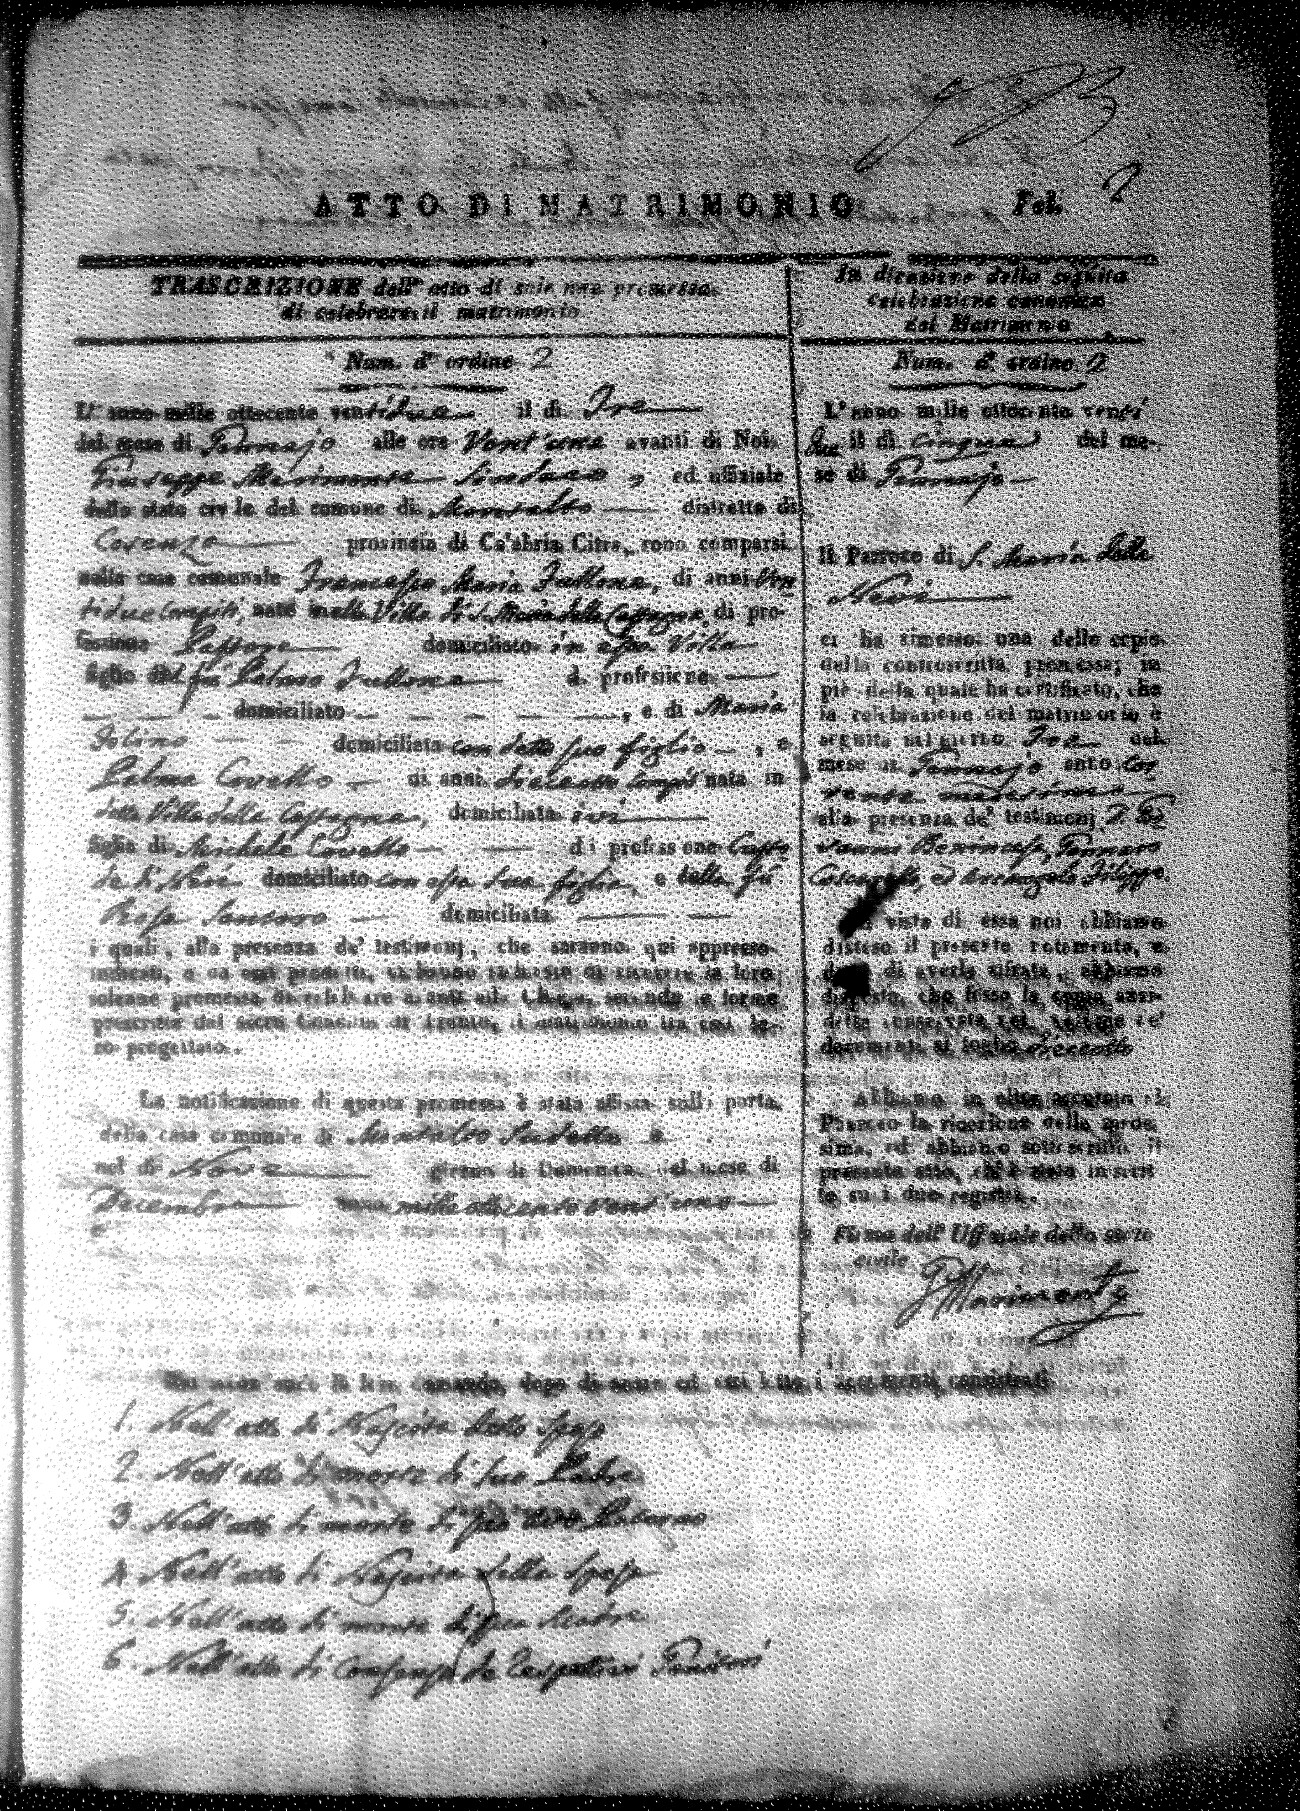 ATTO DI MATRIMONIO Fol. 2
TRASCRIZIONE dell' atto di solenne promessa
di celebrare il matrimonio
Num. d' ordine 2
L' anno mille ottocento ventidue il dì Tre
del mese di Gennajo alle ore Vent'una avanti di Noi
Giuseppe Marimonte Sindaco ed uffiziale
dello stato civile del comune di Montalto distretto di
Cosenza provincia di Calabria Citra, sono comparsi
nella casa comunale Francesco Maria Fullone, di anni Ven
tidue compiti, nato nella Villa di S. Maria della di pro-
fessione domiciliato in essa Villa
figlio del fu Fullone di professione
domiciliato , e di Maria
domiciliata con detto suo figlio , e
Palma Covello di anni dieciotto compiti nata in
detta Villa della domiciliata ivi
figlia di Michele Covello di professione
domiciliato con essa sua figlia, e della fu
Rosa domiciliata
i quali, alla presenza de' testimonj, che saranno qui appresso
indicati, e da essi prodotti, ci hanno richiesto di ricevere la loro
solenne promessa di celebrare avanti alla Chiesa, secondo le forme
prescritte dal sacro Concilio di Trento, il matrimonio tra essi lo-
ro progettato.
La notificazione di questa promessa è stata affissa sulla porta
della casa comunale di Montalto sudetto
nel dì Nove giorno di Domenica del mese di
Decembre mille ottocento vent'uno
In dicazione della seguita
celebrazione canonica
del Matrimonio
Num. d' ordine 2
L' anno mille ottocento venti
due il dì cinque del me-
se di Gennajo
Il Parroco di S. Maria della
Neve
ci ha rimesso una delle copie
della controscritta promessa; in
piè della quale ha certificato, che
la celebrazione del matrimonio è
seguita nel giorno Tre del
mese di Gennajo anno cor
rente medesimo
alla presenza de' testimonj D. Gio
vanni Benincasa, Gennaro
ed Arcangelo Filippo
In vista di essa noi abbiamo
disteso il presente notamento, e
dopo di averla cifrata, abbiamo
disposto, che fosse la copia anzi-
detta conservata nel volume de'
documenti al foglio dieciotto
Abbiamo in oltre accusato al
Parroco la ricezione della mede-
sima, ed abbiamo sottoscritto il
presente atto, ch'è stato inscrit
to su i due registri.
Firma dell' Uffiziale dello stato
civile
G Marimonte
1. Nell'atto di Nascita dello Sposo
2. Nell'atto di morte di suo Padre
3. Nell'atto di morte di suo Avo Paterno
4. Nell'atto di Nascita della Sposa
5. Nell'atto di morte di sua Madre
6. Nell'atto di Consenso de' rispettivi Genitori